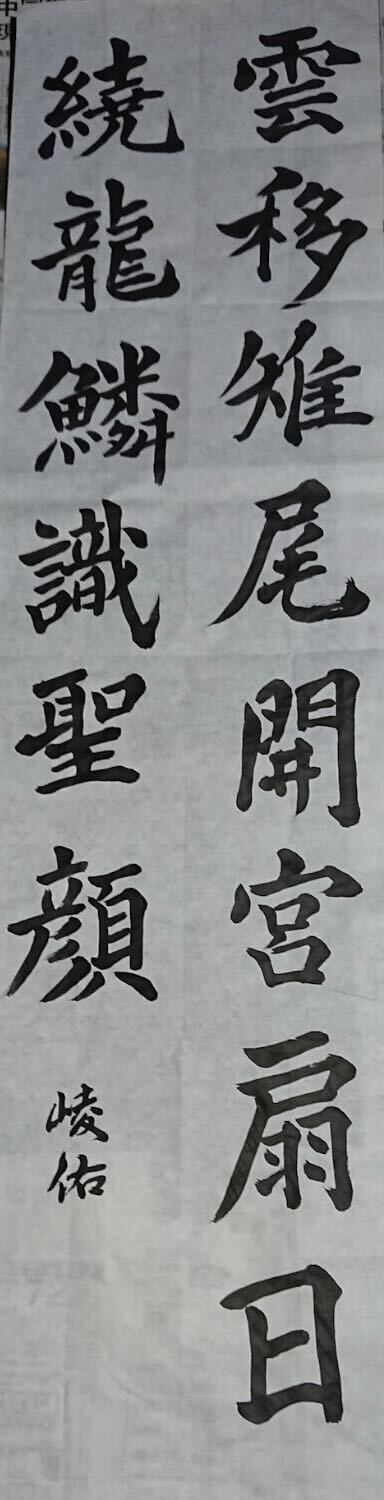 雲移雉尾開宮扇日
繞龍鱗識聖顔
崚佑